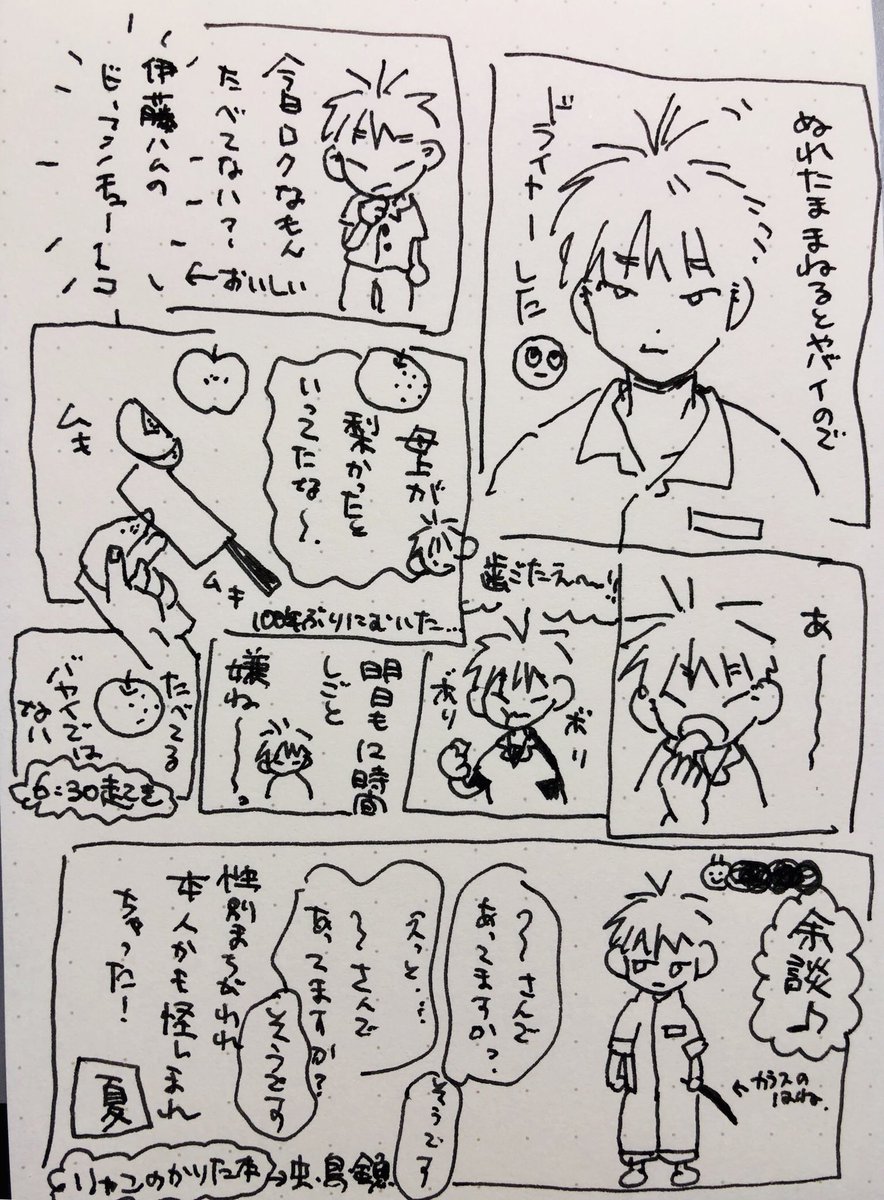 ぬれたままねるとヤバイので
ドライヤーした
今日ロクなもん
たべてないな〜
伊藤ハムの
←おいしい
母上が
梨かったと
いってたな〜.
ムキ
ムキ
100年ぶりにむいた…
あ〜〜
歯ごたえ〜〜!!
ボリ
ボリ
明日も12時間
しごと
嫌ね〜〜。
たべてる
バヤイでは
ない
6:30起き
余談♪
←カラスの
はね.
〜さんで
あってますか?
そうです
えっと…
〜さんで
あってますか?
そうです
性別まちがわれ
本人かも怪しまれ
ちゃった!
夏
→虫・鳥・魚